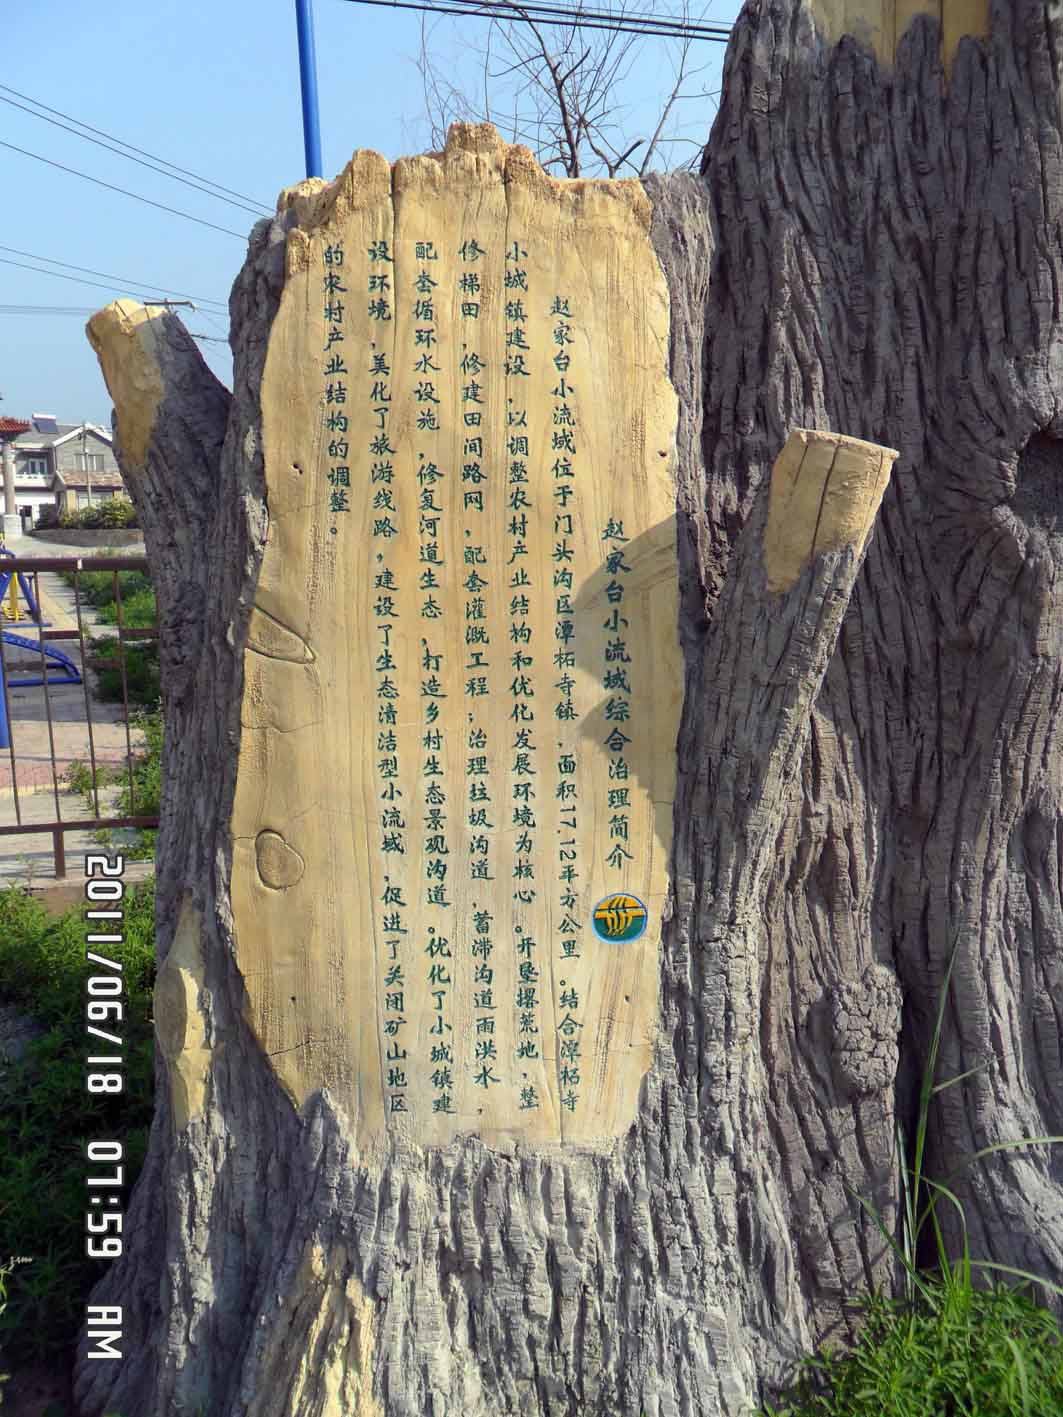 赵家台小流域综合治理简介
赵家台小流域位于门头沟区潭柘寺镺，面积17.12平方公里。结合潭柘寺
小城镇建设，以调整农村产业结构和优化发展环境为核心。开垦撂荒地，整
修梯田，修建田间路网，配套灌溉工程；治理垃圾沟道，蓄滞沟道雨洪水，
配套循环水设施，修复河道生态，打造乡村生态景观沟道。优化了小城镇建
设环境，美化了旅游线路，建设了生态清洁型小流域，促进了关闭矿山地区
的农村产业结构的调整。
2011/06/18 07:59 AM